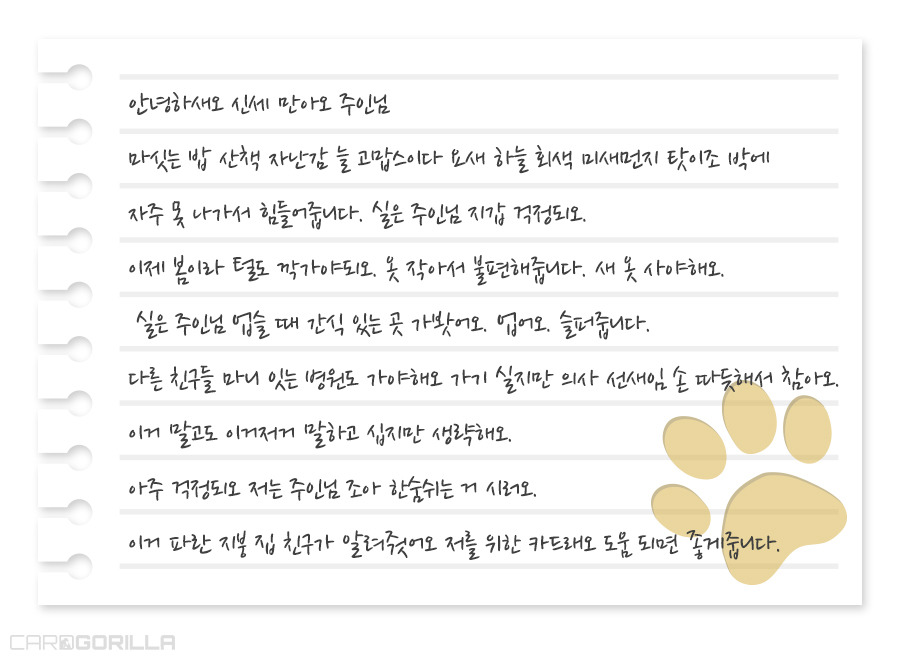 안녕하새오 신세 만아오 주인님
마싯는 밥 산책 자난감 늘 고맙스이다 요새 하늘 회색 미새먼지 탓이조 박에
자주 못 나가서 힘들어줍니다. 실은 주인님 지갑 걱정되오.
이제 봄이라 털도 깍가야되오. 옷 작아서 불편해줍니다. 새 옷 사야해오.
실은 주인님 업슬 때 간식 있는 곳 가봣어오. 업어오. 슬퍼줍니다.
다른 친구들 마니 잇는 병원도 가야해오 가기 실지만 의사 선새임 손 따듯해서 참아오.
이거 말고도 이거저거 말하고 십지만 생략해오.
아주 걱정되오 저는 주인님 조아 한숨쉬는 거 시러오.
이거 파란 지붕 집 친구가 알려줫어오 저를 위한 카드래오 도움 되면 좋게줍니다.
CARD GORILLA